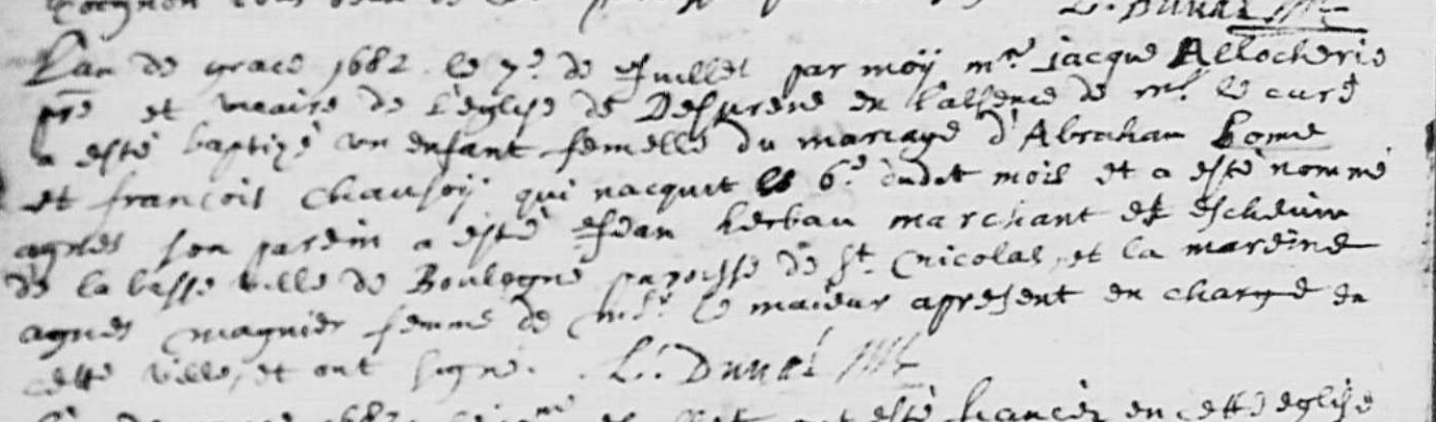 L. Duval
L'an de grace 1682 le 7e de Juillet par moÿ mre jacque Allocherie
pre et vicaire de l'église de Desurene en l'absence de mr le curé
a esté baptizé un enfant femelle du mariage d'Abraham
et françois qui nacquit le 6e dudit mois et a esté nommé
agnes son parein a esté Jean marchant et eschevin
de la basse ville de Boulogne paroisse de St nicolas, et la mareine
agnes magnier femme de mr le maieur apresent en charge en
cette ville, et ont signé. L. Duval
1682 esté en cette eglise